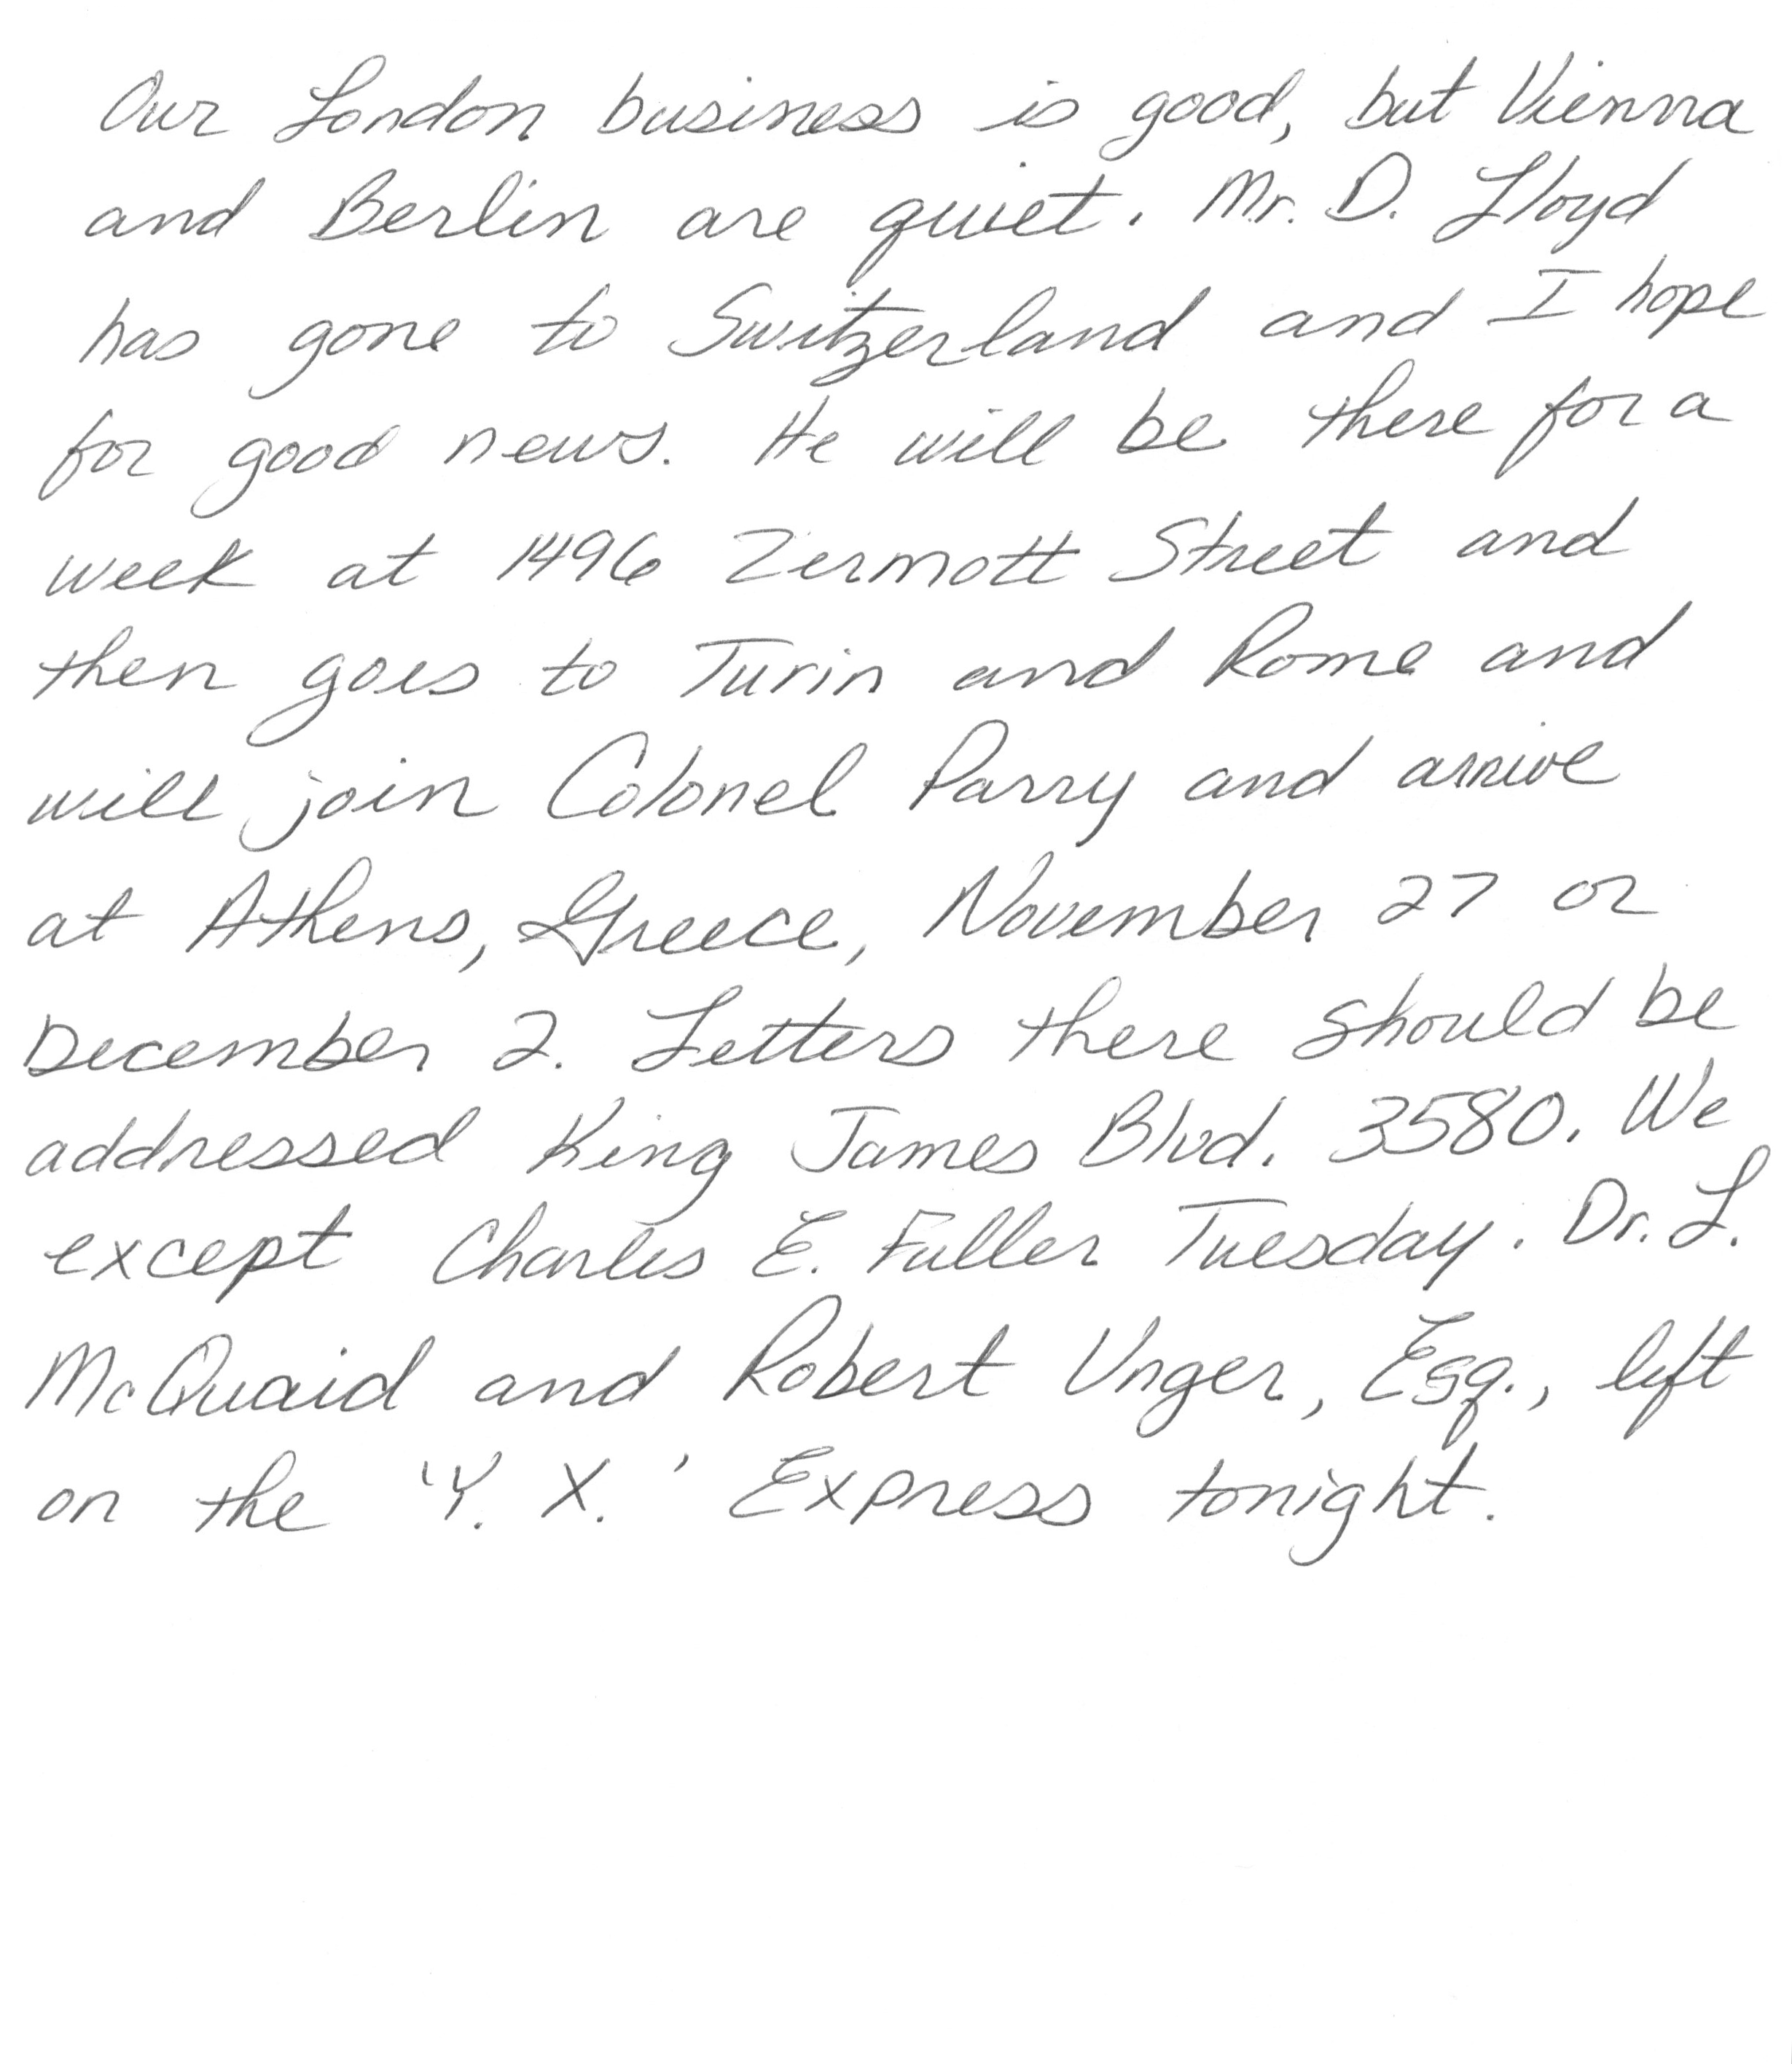 Our London business is good, but Vienna
and Berlin are quiet. Mr. D. Lloyd
has gone to Switzerland and I hope
for good news. He will be there for a
week at 1496 Zermott Street and
then goes to Turin and Rome and
will join Colonel Parry and arrive
at Athens, Greece, November 27 or
December 2. Letters there should be
addressed King James Blvd. 3580. We
except Charles E. Fuller Tuesday. Dr. L.
McQuaid and Robert Unger, Esq., left
on the 'Y. X.' Express tonight.